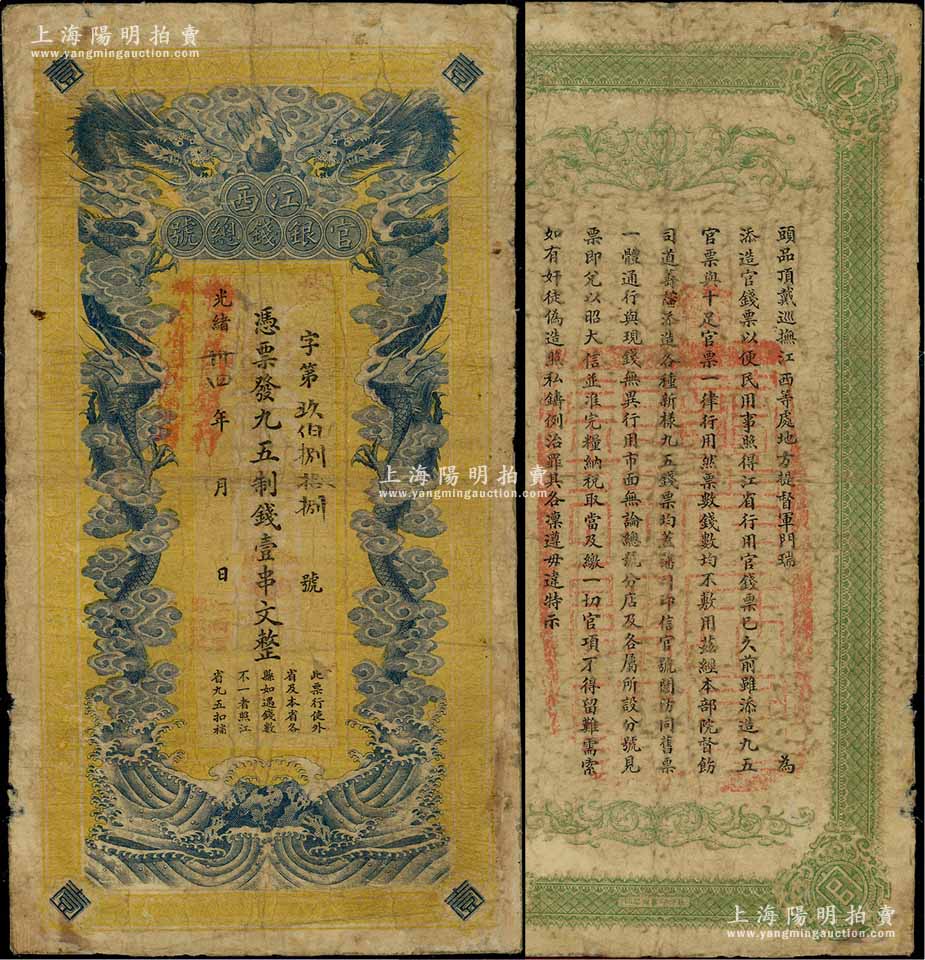 上海陽明拍賣
www.yangmingauction.com
壹
壹
江西
官銀錢總號
字第玖伯捌拾捌號
憑票發九五制錢壹串文整
光緒卅四年 月 日
此票行使外
省及本省各
縣如遇錢數
不一者照江
省九五扣補
壹
壹
上海陽明拍賣
www.yangmingauction.com
頭品頂戴巡撫江西等處地方提督軍門瑞 為
添造官錢票以便民用事照得江省行用官錢票已久前雖添造九五
官票與十足官票一律行用然票數錢數均不敷用茲經本部院督飭
司道籌落添造各種新樣九五錢票均蓋藩司印信官號關防同舊票
一體通行與現錢無異行用市面無論總號分店及各屬所設分號見
票即兌以昭大信並准完糧納稅取當及繳一切官項不得留難需索
如有奸徒偽造照私鑄例治罪其各凜遵毋違特示
上海陽明拍賣
www.yangmingauction.com
上海陽明拍賣
www.yangmingauction.com